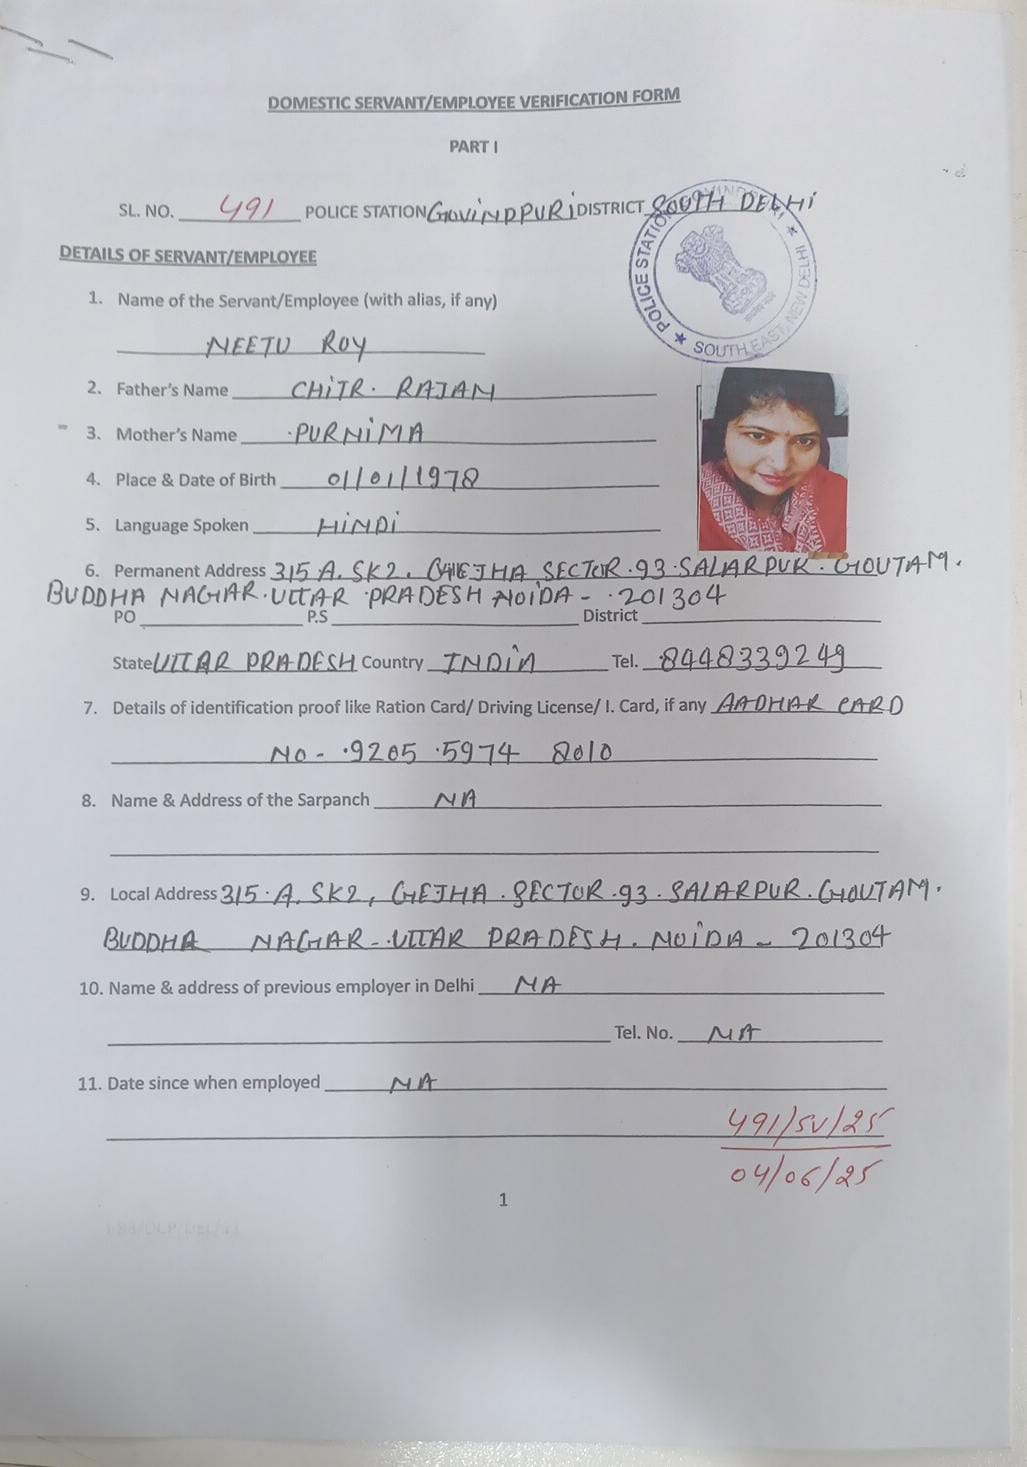 DOMESTIC SERVANT/EMPLOYEE VERIFICATION FORM
PART I
SL. NO. 491 POLICE STATION GOVINDPURI DISTRICT SOUTH DELHI
POLICE STATION
SOUTH EAST, NEW DELHI
DETAILS OF SERVANT/EMPLOYEE
1. Name of the Servant/Employee (with alias, if any)
NEETU ROY
2. Father's Name CHITR. RAJAN
3. Mother's Name PURNIMA
4. Place & Date of Birth 01/01/1978
5. Language Spoken HINDI
6. Permanent Address 315 A. SK2. GHEJHA SECTOR.93.SALARPUR.GOUTAM.
BUDDHA NAGAR.UTTAR PRADESH NOIDA - 201304
PO P.S District
State UTTAR PRADESH Country INDIA Tel. 8448339249
7. Details of identification proof like Ration Card/ Driving License/ I. Card, if any AADHAR CARD
No - 9205 5974 8010
8. Name & Address of the Sarpanch NA
9. Local Address 315.A.SK2, GEJHA.SECTOR.93.SALARPUR.GOUTAM.
BUDDHA NAGAR-UTTAR PRADESH.NOIDA - 201304
10. Name & address of previous employer in Delhi NA
Tel. No. NA
11. Date since when employed NA
491/SV/25
04/06/25
1